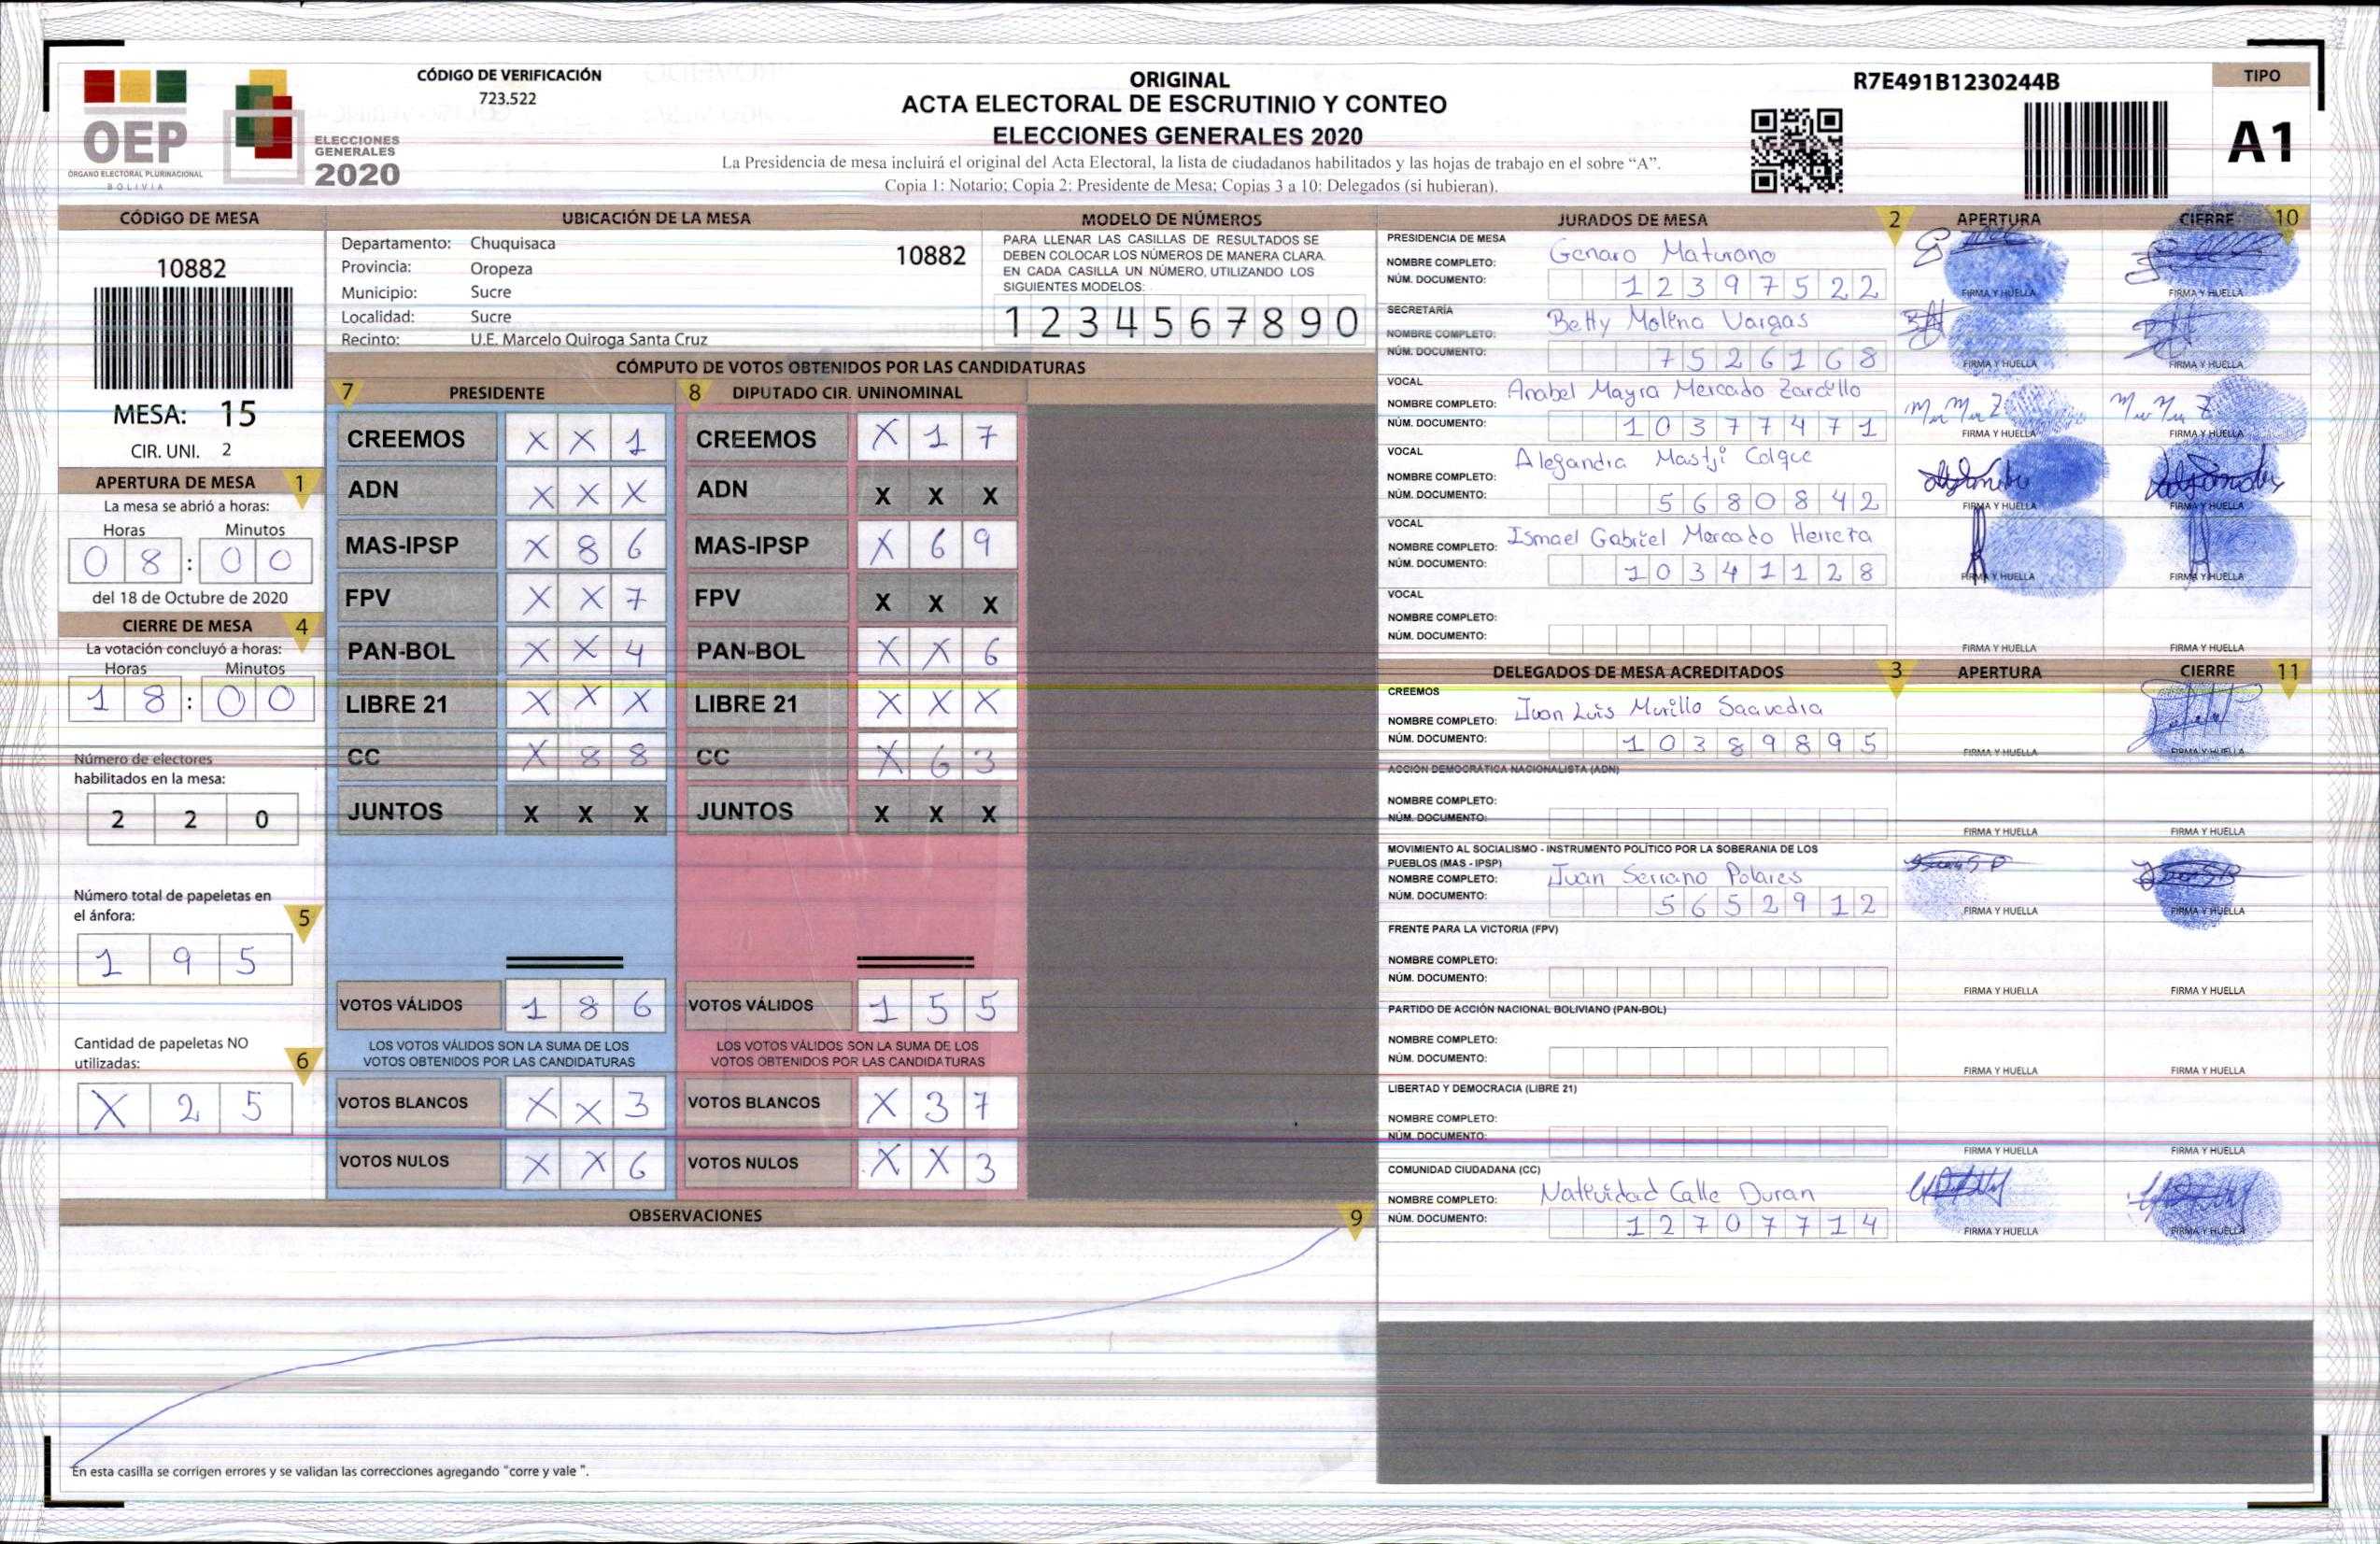 OEP
ÓRGANO ELECTORAL PLURINACIONAL
BOLIVIA
ELECCIONES
GENERALES
2020
CÓDIGO DE VERIFICACIÓN
723.522
ORIGINAL
ACTA ELECTORAL DE ESCRUTINIO Y CONTEO
ELECCIONES GENERALES 2020
La Presidencia de mesa incluirá el original del Acta Electoral, la lista de ciudadanos habilitados y las hojas de trabajo en el sobre “A”.
Copia 1: Notario; Copia 2: Presidente de Mesa; Copias 3 a 10: Delegados (si hubieran).
R7E491B1230244B
TIPO
A1
CÓDIGO DE MESA
10882
MESA: 15
CIR. UNI. 2
APERTURA DE MESA 1
La mesa se abrió a horas:
Horas Minutos
0 8 : 0 0
del 18 de Octubre de 2020
CIERRE DE MESA 4
La votación concluyó a horas:
Horas Minutos
1 8 : 0 0
Número de electores
habilitados en la mesa:
2 2 0
Número total de papeletas en
el ánfora: 5
1 9 5
Cantidad de papeletas NO
utilizadas: 6
X 2 5
UBICACIÓN DE LA MESA
Departamento: Chuquisaca 10882
Provincia: Oropeza
Municipio: Sucre
Localidad: Sucre
Recinto: U.E. Marcelo Quiroga Santa Cruz
MODELO DE NÚMEROS
PARA LLENAR LAS CASILLAS DE RESULTADOS SE
DEBEN COLOCAR LOS NÚMEROS DE MANERA CLARA.
EN CADA CASILLA UN NÚMERO, UTILIZANDO LOS
SIGUIENTES MODELOS:
1 2 3 4 5 6 7 8 9 0
CÓMPUTO DE VOTOS OBTENIDOS POR LAS CANDIDATURAS
7 PRESIDENTE 8 DIPUTADO CIR. UNINOMINAL
CREEMOS X X 1 CREEMOS X 1 7
ADN X X X ADN X X X
MAS-IPSP X 8 6 MAS-IPSP X 6 9
FPV X X 7 FPV X X X
PAN-BOL X X 4 PAN-BOL X X 6
LIBRE 21 X X X LIBRE 21 X X X
CC X 8 8 CC X 6 3
JUNTOS X X X JUNTOS X X X
VOTOS VÁLIDOS 1 8 6 VOTOS VÁLIDOS 1 5 5
LOS VOTOS VÁLIDOS SON LA SUMA DE LOS LOS VOTOS VÁLIDOS SON LA SUMA DE LOS
VOTOS OBTENIDOS POR LAS CANDIDATURAS VOTOS OBTENIDOS POR LAS CANDIDATURAS
VOTOS BLANCOS X X 3 VOTOS BLANCOS X 3 7
VOTOS NULOS X X 6 VOTOS NULOS X X 3
OBSERVACIONES 9
En esta casilla se corrigen errores y se validan las correcciones agregando "corre y vale ".
JURADOS DE MESA 2 APERTURA CIERRE 10
PRESIDENCIA DE MESA
NOMBRE COMPLETO: Genaro Maturano
NÚM. DOCUMENTO: 1 2 3 9 7 5 2 2 FIRMA Y HUELLA FIRMA Y HUELLA
SECRETARÍA
NOMBRE COMPLETO: Betty Molina Vargas
NÚM. DOCUMENTO: 7 5 2 6 1 6 8 FIRMA Y HUELLA FIRMA Y HUELLA
VOCAL
NOMBRE COMPLETO: Anabel Mayra Mercado Zarcillo
NÚM. DOCUMENTO: 1 0 3 7 7 4 7 1 FIRMA Y HUELLA FIRMA Y HUELLA
VOCAL
NOMBRE COMPLETO: Alejandra Colque
NÚM. DOCUMENTO: 5 6 8 0 8 4 2 FIRMA Y HUELLA FIRMA Y HUELLA
VOCAL
NOMBRE COMPLETO: Ismael Gabriel Mercado Herrera
NÚM. DOCUMENTO: 1 0 3 4 1 1 2 8 FIRMA Y HUELLA FIRMA Y HUELLA
VOCAL
NOMBRE COMPLETO:
NÚM. DOCUMENTO: FIRMA Y HUELLA FIRMA Y HUELLA
DELEGADOS DE MESA ACREDITADOS 3 APERTURA CIERRE 11
CREEMOS
NOMBRE COMPLETO: Juan Luis Murillo Saavedra
NÚM. DOCUMENTO: 1 0 3 8 9 8 9 5 FIRMA Y HUELLA FIRMA Y HUELLA
ACCIÓN DEMOCRÁTICA NACIONALISTA (ADN)
NOMBRE COMPLETO:
NÚM. DOCUMENTO: FIRMA Y HUELLA FIRMA Y HUELLA
MOVIMIENTO AL SOCIALISMO - INSTRUMENTO POLÍTICO POR LA SOBERANIA DE LOS
PUEBLOS (MAS - IPSP)
NOMBRE COMPLETO: Juan Serrano Polares
NÚM. DOCUMENTO: 5 6 5 2 9 1 2 FIRMA Y HUELLA FIRMA Y HUELLA
FRENTE PARA LA VICTORIA (FPV)
NOMBRE COMPLETO:
NÚM. DOCUMENTO: FIRMA Y HUELLA FIRMA Y HUELLA
PARTIDO DE ACCIÓN NACIONAL BOLIVIANO (PAN-BOL)
NOMBRE COMPLETO:
NÚM. DOCUMENTO: FIRMA Y HUELLA FIRMA Y HUELLA
LIBERTAD Y DEMOCRACIA (LIBRE 21)
NOMBRE COMPLETO:
NÚM. DOCUMENTO: FIRMA Y HUELLA FIRMA Y HUELLA
COMUNIDAD CIUDADANA (CC)
NOMBRE COMPLETO: Natividad Calle Duran
NÚM. DOCUMENTO: 1 2 7 0 7 7 1 4 FIRMA Y HUELLA FIRMA Y HUELLA